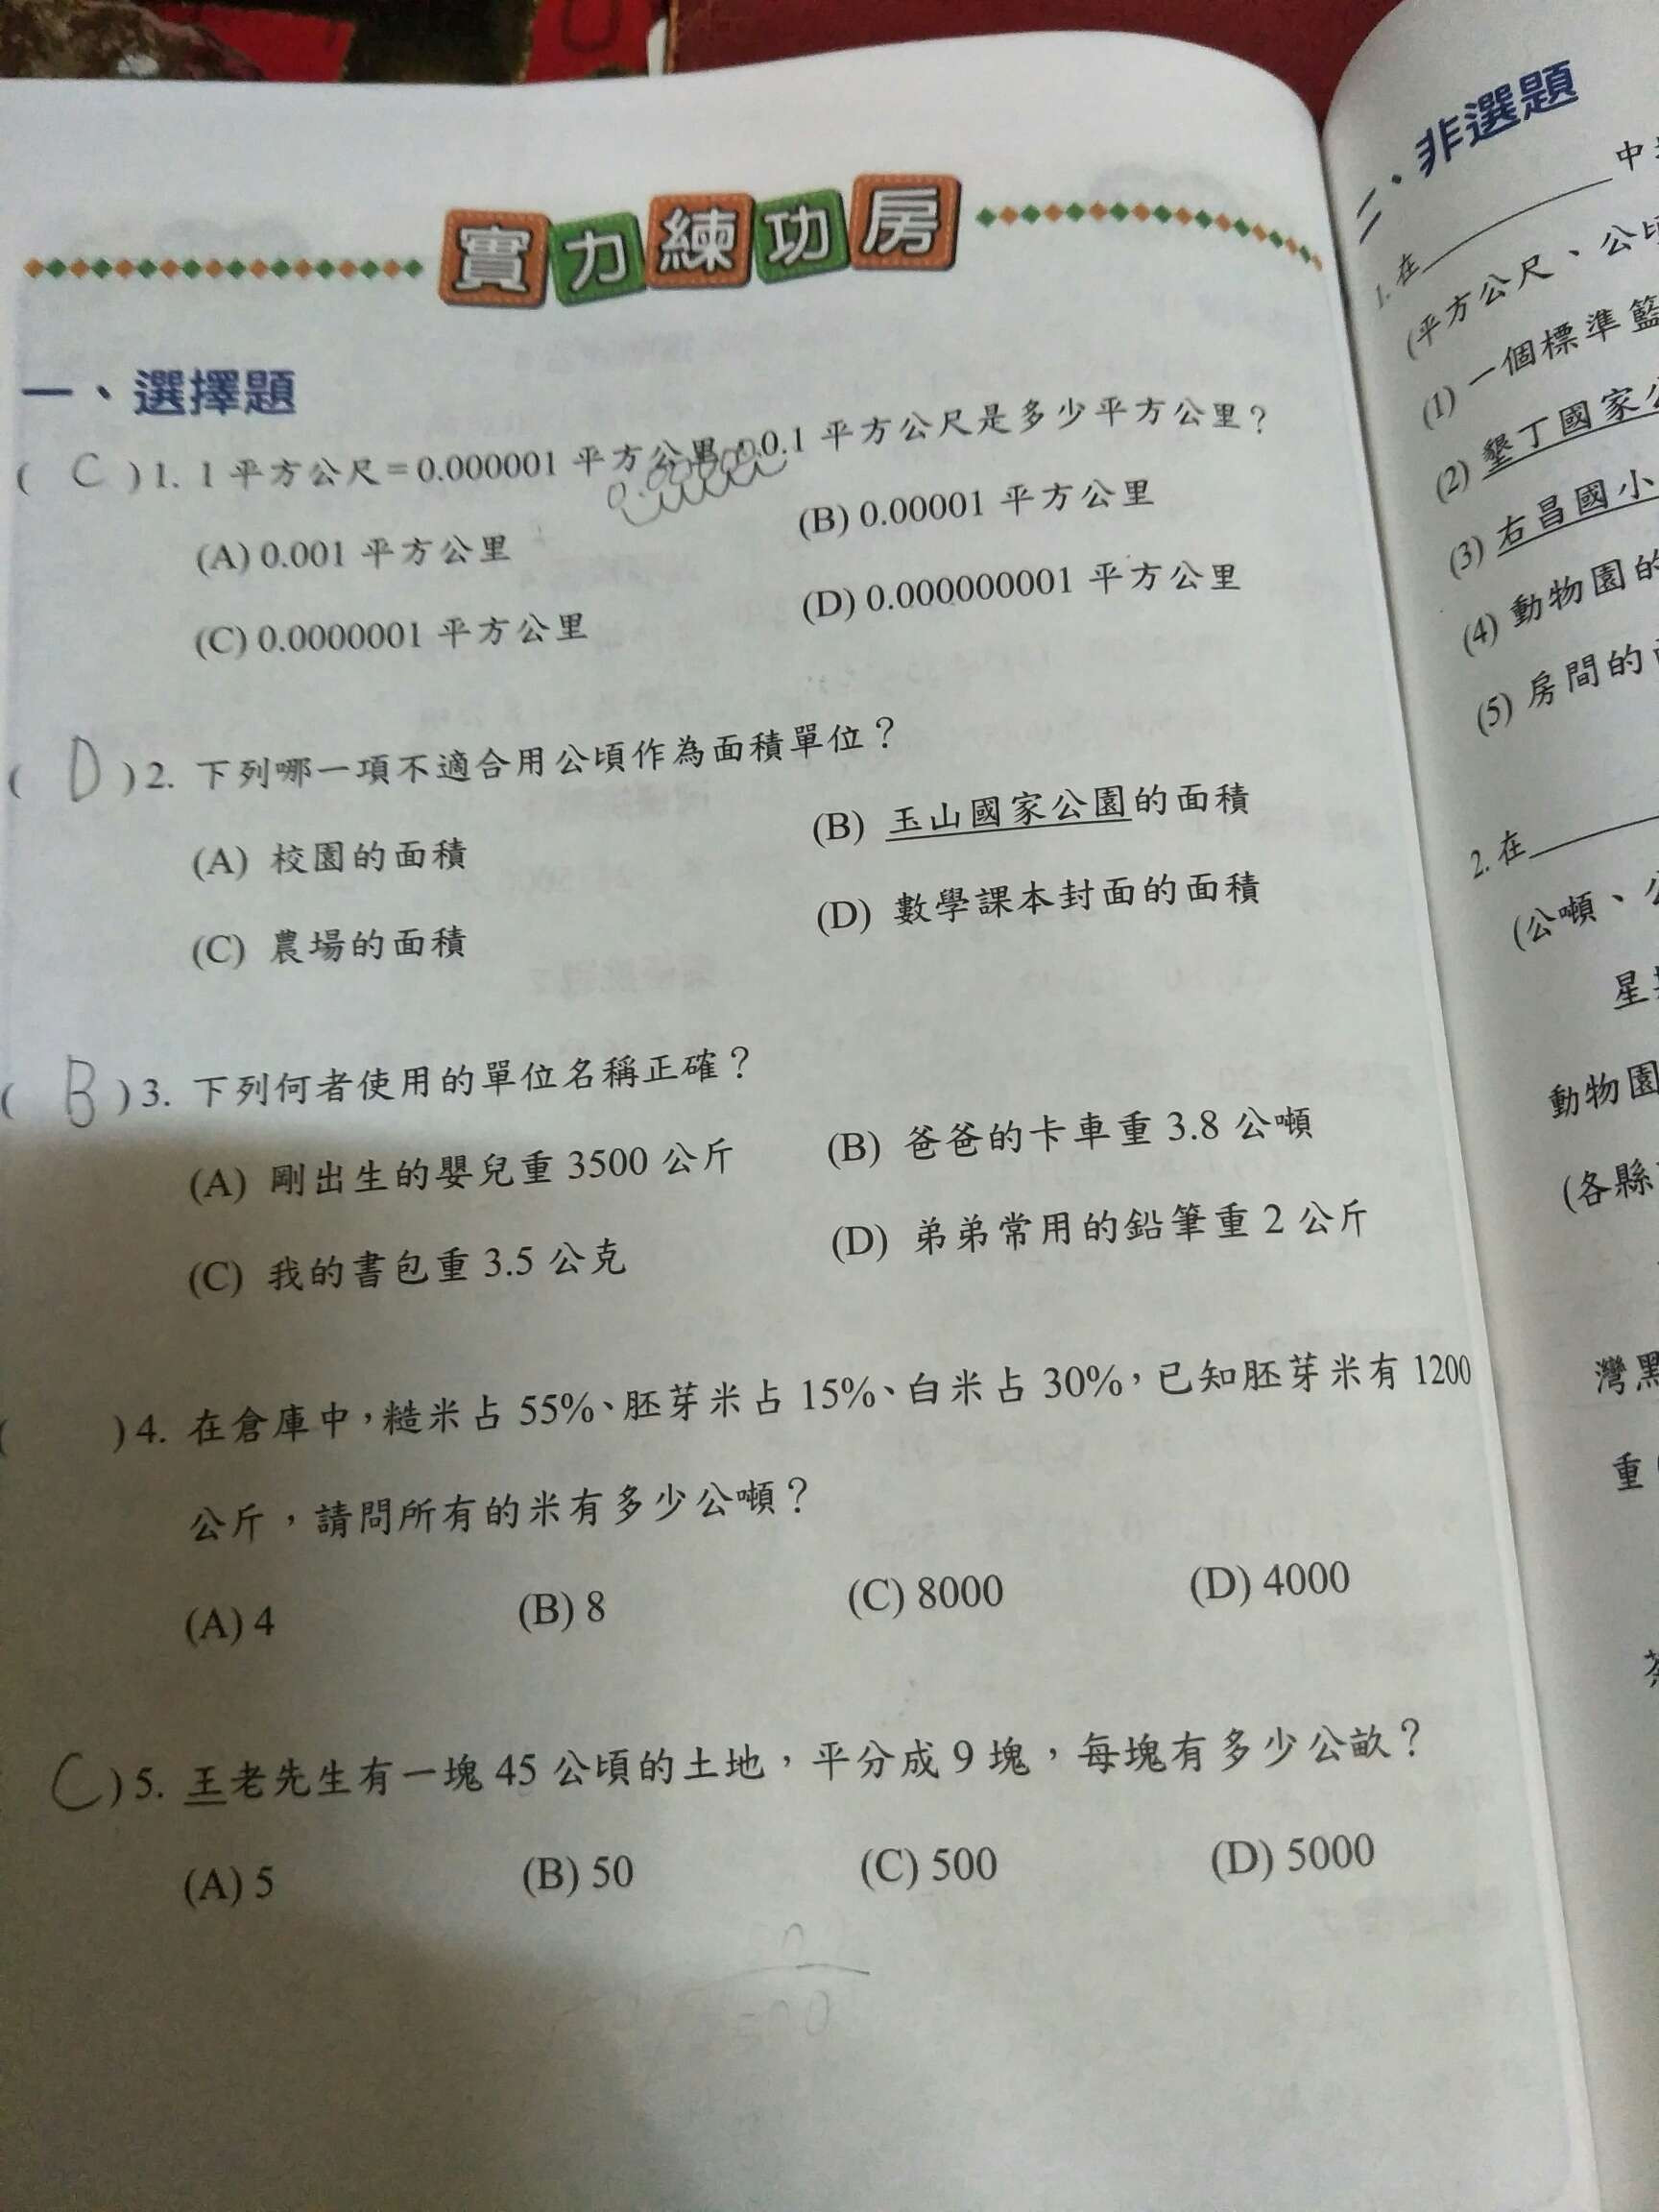 實力練功房
一、選擇題
( C )1. 1 平方公尺=0.000001 平方公里,0.1 平方公尺是多少平方公里?
(A) 0.001 平方公里 (B) 0.00001 平方公里
(C) 0.0000001 平方公里 (D) 0.000000001 平方公里
( D )2. 下列哪一項不適合用公頃作為面積單位?
(A) 校園的面積 (B) 玉山國家公園的面積
(C) 農場的面積 (D) 數學課本封面的面積
( B )3. 下列何者使用的單位名稱正確?
(A) 剛出生的嬰兒重 3500 公斤 (B) 爸爸的卡車重 3.8 公噸
(C) 我的書包重 3.5 公克 (D) 弟弟常用的鉛筆重 2 公斤
( )4. 在倉庫中,糙米占 55%、胚芽米占 15%、白米占 30%,已知胚芽米有 1200
公斤,請問所有的米有多少公噸?
(A) 4 (B) 8 (C) 8000 (D) 4000
C )5. 王老先生有一塊 45 公頃的土地,平分成 9 塊,每塊有多少公畝?
(A) 5 (B) 50 (C) 500 (D) 5000
二、非選題
1. 在 中
(平方公尺、公頃
(1) 一個標準籃
(2) 墾丁國家公
(3) 右昌國小
(4) 動物園的
(5) 房間的
2. 在
(公噸、公
星
動物園
(各縣
灣黑
重